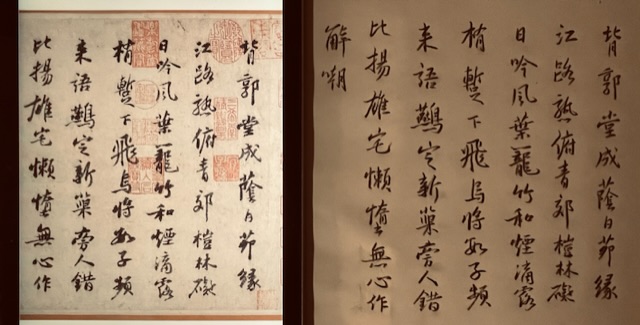 背郭堂成蔭白茆緣
江路熟俯青郊榿林礙
日吟風葉籠竹和煙滴露
梢暫下飛烏將數子頻
來語鷰定新巢旁人錯
比揚雄宅懶惰無心作
背郭堂成蔭白茆緣
江路熟俯青郊榿林礙
日吟風葉籠竹和煙滴露
梢暫下飛烏將數子頻
來語鷰定新巢旁人錯
比揚雄宅懶惰無心作
解嘲